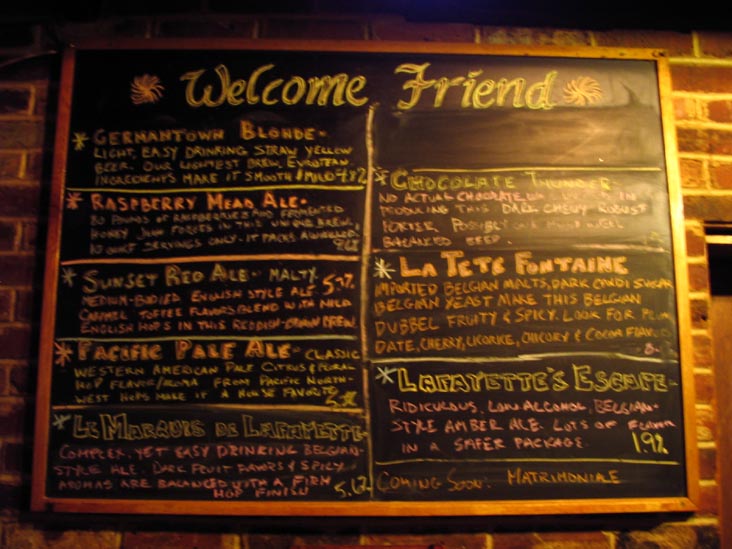 Welcome Friend
* Germantown Blonde -
Light, easy drinking straw yellow
beer. Our lightest brew. European
ingredients make it smooth & mild 4.8%
* Raspberry Mead Ale -
80 pounds of raspberries and fermented
honey join forces in this unique brew.
10 ounce servings only. It packs a wallop.
* Sunset Red Ale - Malty,
medium-bodied English style ale. 5.7%
Caramel toffee flavors blend with mild
English hops in this reddish-brown brew
* Pacific Pale Ale - Classic
Western American Pale. Citrus & floral
hop flavor/aroma from Pacific North-
west hops make it a house favorite
* Le Marquis de Lafayette -
Complex, yet easy drinking Belgian-
style ale. Dark fruit flavors & spicy
aromas are balanced with a firm
hop finish
* Chocolate Thunder -
No actual chocolate in
producing this dark chewy robust
porter. Possibly our most well
balanced beer.
* La Tete Fontaine
Imported Belgian malts, dark candi sugar
Belgian yeast make this Belgian
Dubbel fruity & spicy. Look for plum
date, cherry, licorice, chicory & cocoa flavors
* Lafayette's Escape -
Ridiculous, low alcohol, Belgian-
style amber ale. Lots of flavor
in a safer package. 1.9%
Coming Soon: Matrimoniale